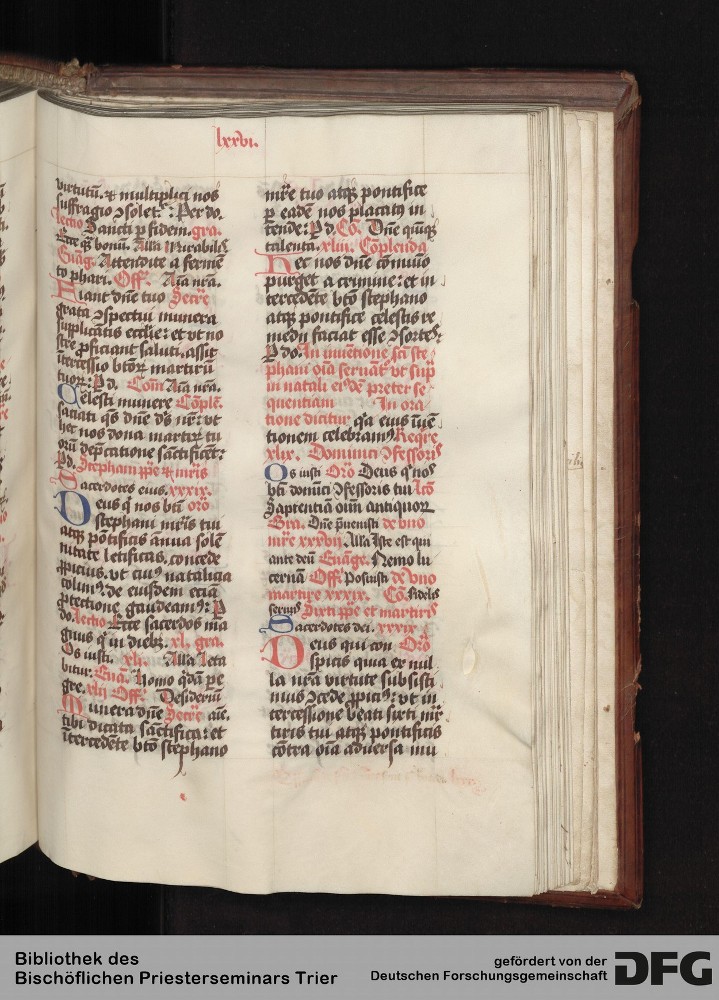 lxxvi.
virtutū. ⁊ multiplici nos
suffragio ↄsolet᷑: Per do.
Lectio Sancti p̄ fidem. gra.
Ecce q̄ȝ bonū. Alla Mirabilis
Euāg. Attendite a fermē
to phari. Off. Aīa nr̄a.
Fiant dn̄e tuo Secre
grata ↄspectui munera
supplicātis ecclie: et vt no
stre ꝓficiant saluti. assit
ītercessio btōꝝ martirū
tuoꝝ: P d. Com Aīa nr̄a.
Celesti munere Cōplē.
saciati qs̄ dn̄e d̄s nr̄: vt
hec nos dona martiꝝ tu
oꝝ dep̄catione sāctificēt:
P d. Stephani p̄pe ⁊ mr̄is
Sacerdotes eius. xxxix.
Deus q̄ nos btī orō
stephani mr̄is tui
atqȝ pōtificis ānua solē
nitate letificas. concede
ꝓpicius. vt cuiꝰ natalicia
colimꝰ. de eiusdem eciā
ꝓtectione gaudeamꝰ: P
do. Lectio Ecce sacerdos ma
gnus q̄ in diebꝫ. xl. gra.
Os iusti. xli. Alla Leta
bitur. Euā. Homo q̄dā pe
gre. xlii Off. Desideriū
Munera dn̄e Secre aīe.
tibi dicata sāctifica: et
ītercedēte btō stephano
mr̄e tuo atqȝ pontifice
p̄ eadē nos placatꝰ in
tende: P d. Cō. Dn̄e quīqȝ
talenta. xliii. Cōplenda
Hec nos dn̄e cōmunio
purget a crimine: et in
tercedēte btō stephano
atqȝ pontifice celestis re
medii faciat esse ↄsortes:
P do. In inuētione scī ste
phani oīa seruāt᷑ vt sup̄
in natali eiꝰdē preter se
quentiam In ora
tione dicitur q̄a eius īuē
tionem celebramꝰ Reqre
xlix. Dominici ↄfessoris
Os iusti Orō Deus q̄ nos
btī domīci ↄfessoris tui Lcō
Sapientiā oīm antiquoꝝ
Gra. Dn̄e p̄uenisti de vno
mr̄e xxxvii Alla Iste est qui
ante deū Euāge. Nemo lu
cernā Off. Posuisti de vno
martire xxxix. Cō. Fidelis
seruus Sixti p̄pe et martiris
Sacerdotes dei. xxxix
Deus qui con Orō
spicis quia ex nul
la nr̄a virtute subsisti
mus ↄcede ꝓpiciꝰ: vt in
tercessione beati sixti mr̄
tiris tui atqȝ pontificis
cōtra oīa aduersa mu
Bibliothek des
Bischöflichen Priesterseminars Trier
gefördert von der
Deutschen Forschungsgemeinschaft
DFG